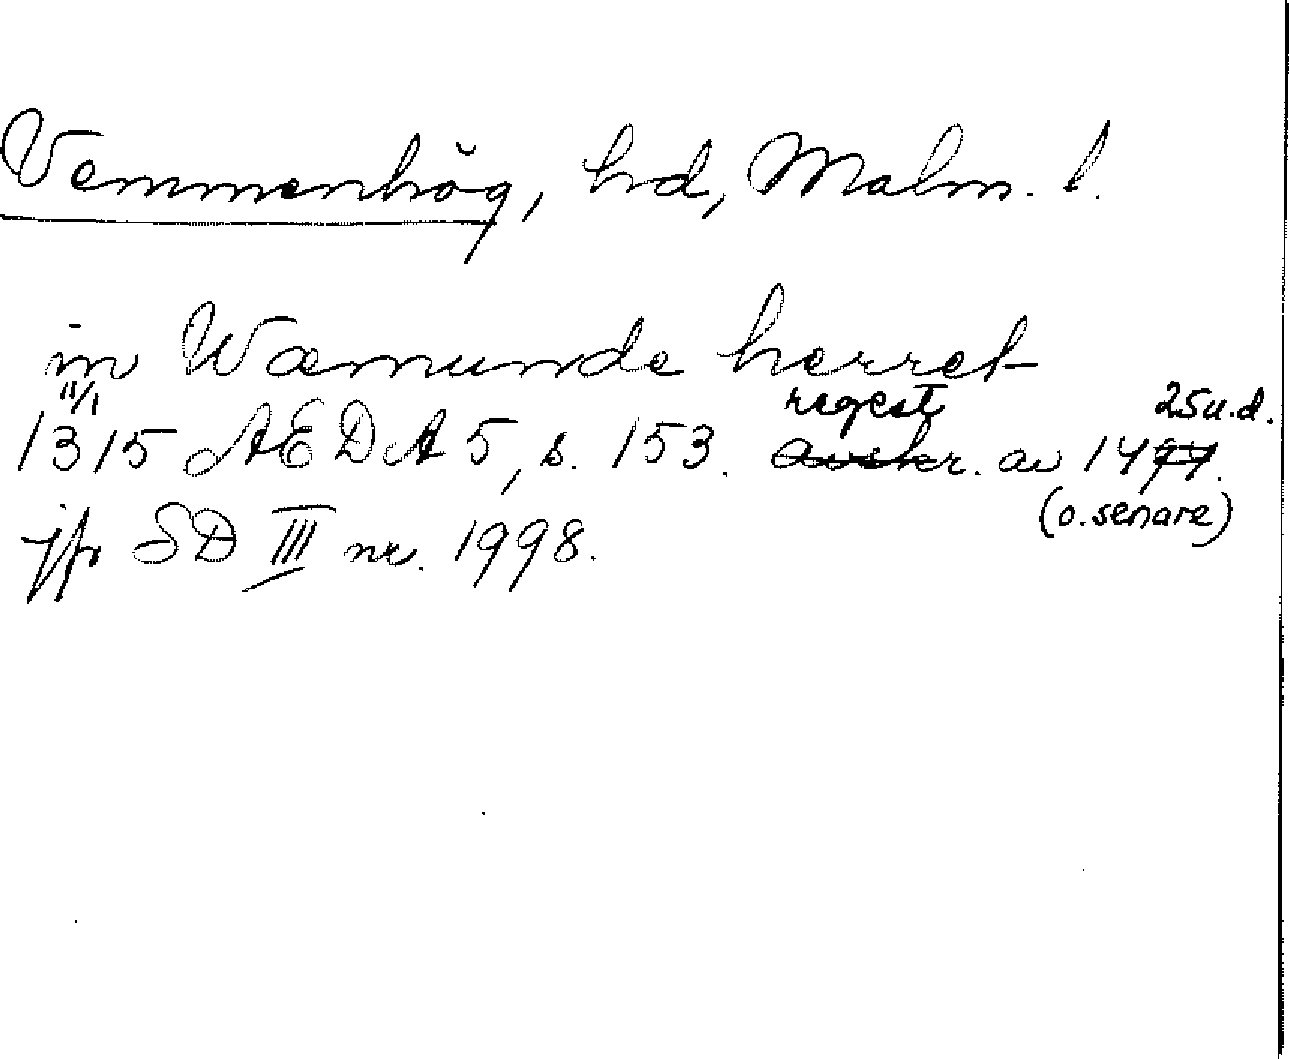 Vemmenhög, hd, Malm. l.
in Wæmunde herret
11/1 regest 25 u.d.
1315 AEDA 5, s. 153. avskr. av 1497.
(o. senare)
jfr SD III nr. 1998.